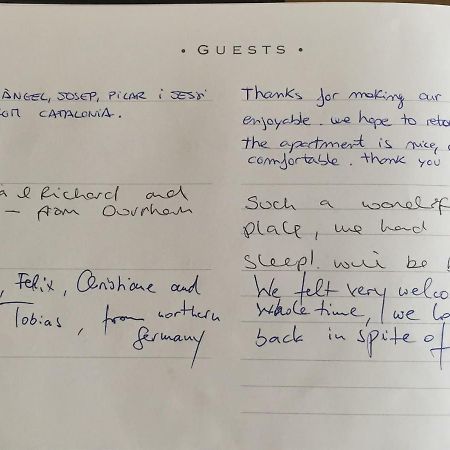 • GUESTS •
ÀNGEL, JOSEP, PILAR i JESSI
CATALONIA.
Thanks for making our
enjoyable. we hope to
the apartment is nice,
comfortable. thank you
Richard and
– from Durham
Such a
place, we had
sleep! be
, Felix, Christiane and
Tobias, from northern
Germany
We felt very
whole time, we
back in spite of